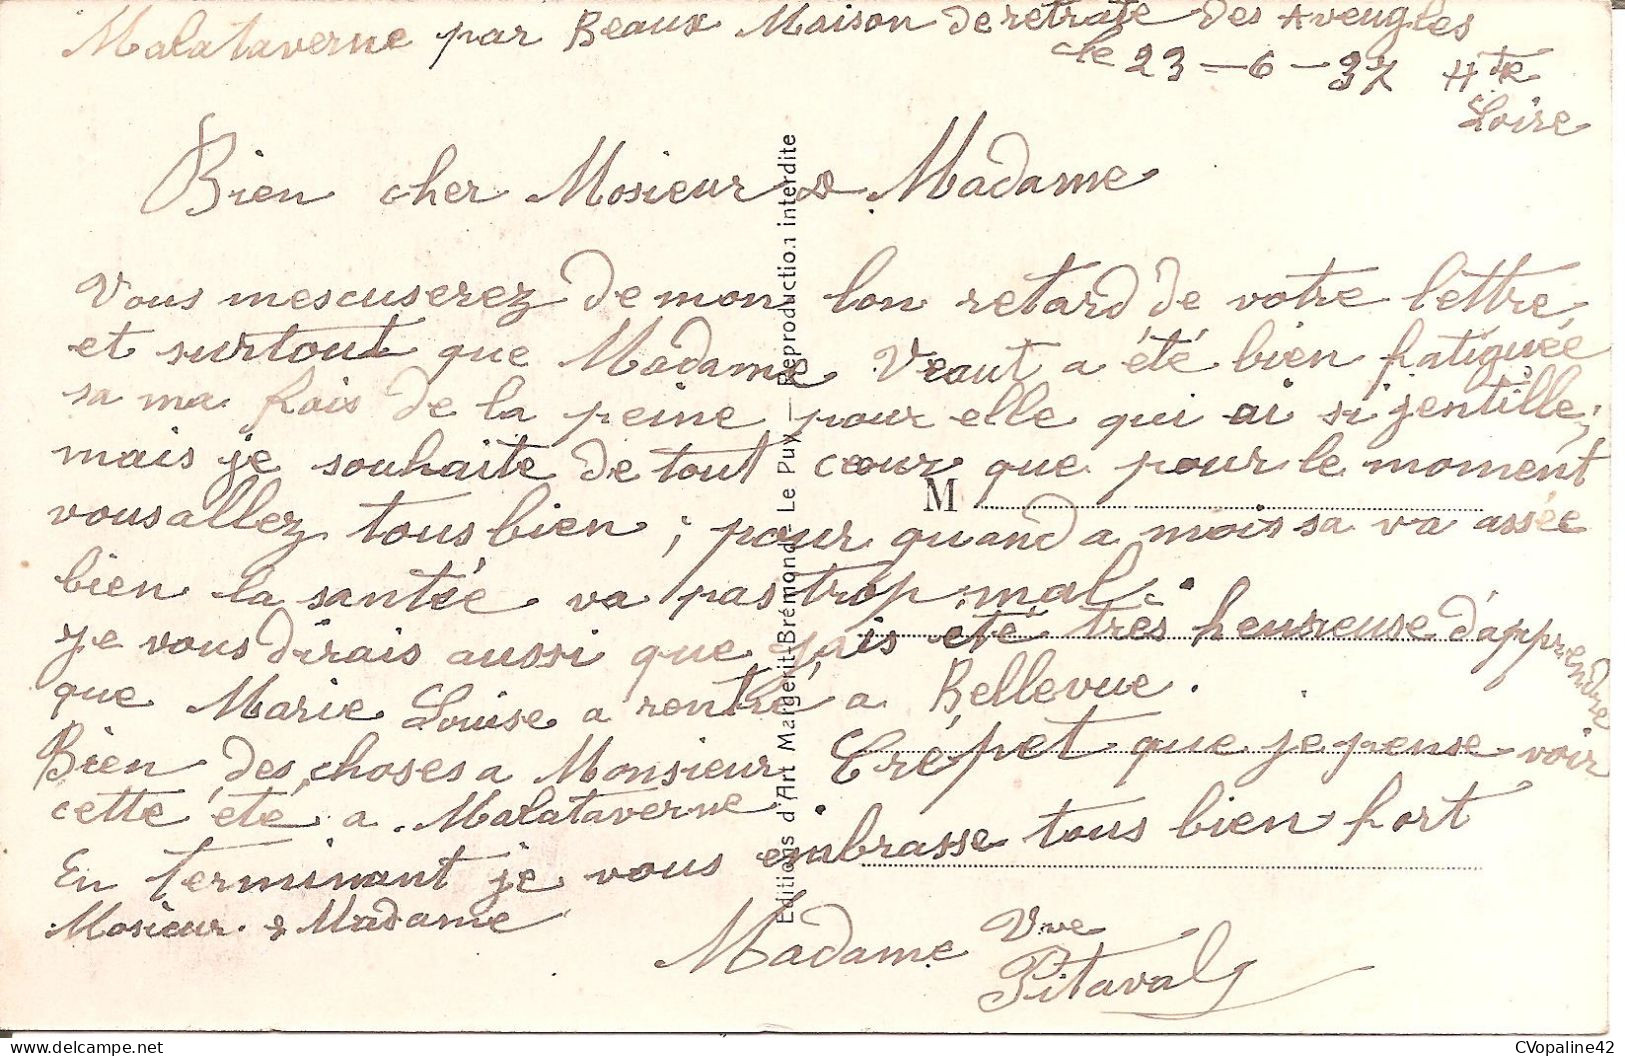 Malataverne par Beaux Maison de retrate des Aveugles
le 23-6-37 Hte
Loire
Bien cher Mosieur & Madame
Vous mescuserez de mon lon retard de votre lettre,
et surtout que Madame Veaut a été bien fatiguée
sa ma fais de la peine pour elle qui ai si jentille,
mais je souhaite de tout cœur que pour le moment
vous allez tous bien ; pour quand a mois sa va assée
bien la santée va pas trop mal.
Je vous dirais aussi que j'ais été très heureuse d'apprendre
que Marie Louise a rentré a Bellevue.
Bien des choses a Monsieur Crépet que je pense voir
cette été a Malataverne.
En terminant je vous embrasse tous bien fort
Mosieur & Madame
Madame Vve
Pitaval
M
Editions d'Art Margerit-Brémond - Le Puy — Reproduction interdite
CVopaline42